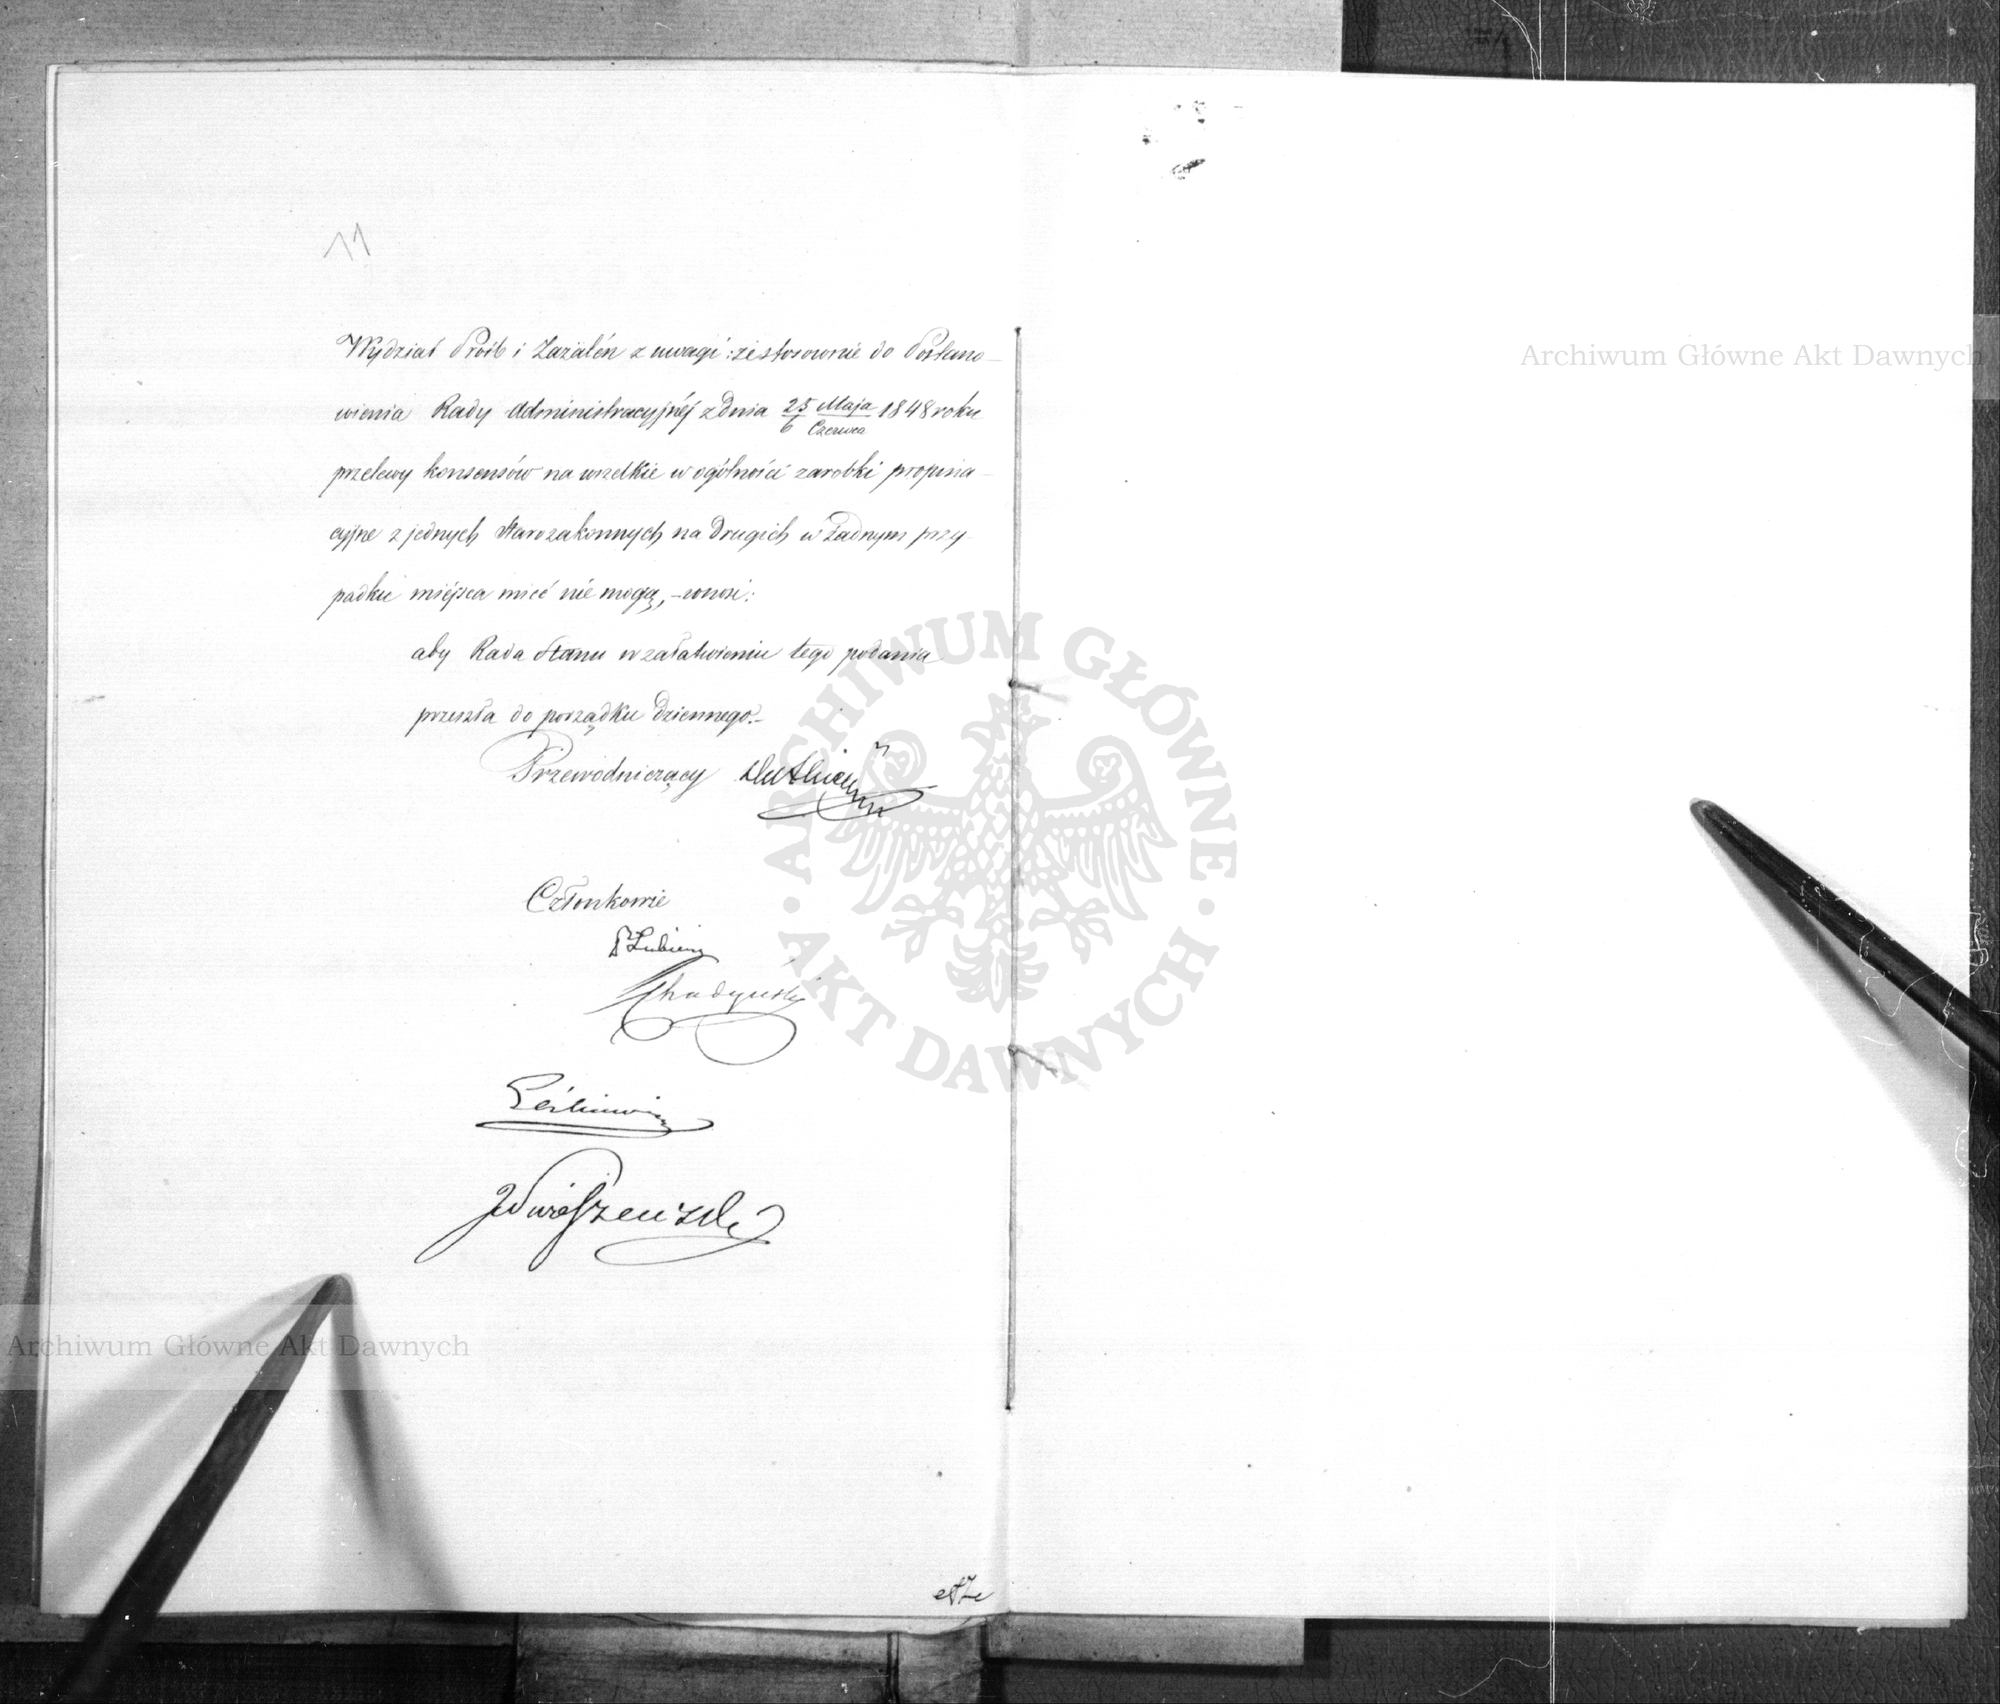 11
Wydział Próśb i Zażaleń z uwagi: że stosownie do Postano-
wienia Rady Administracyjnéj z dnia 25 Maja / 6 Czerwca 1848 roku
przelewy konsensów na wszelkie w ogólności zarobki propina-
cyjne z jednych Starozakonnych na drugich w żadnym przy-
padku miéjsca mieć nie mogą, - wnosi:
aby Rada Stanu w załatwieniu tego podania
przeszła do porządku dziennego.-
Przewodniczący
Członkowie
Łubieńs
Chądzyński
Leśkiewicz
Archiwum Główne Akt Dawnych
Archiwum Główne Akt Dawnych
ARCHIWUM GŁÓWNE AKT DAWNYCH